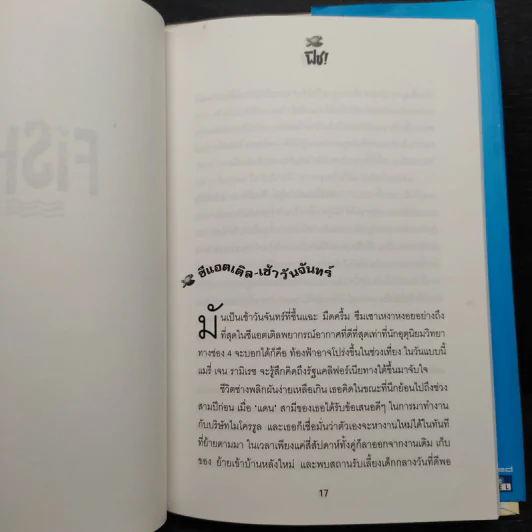 ฟิช!
ซีแอตเติล-เช้าวันจันทร์
มันเป็นเช้าวันจันทร์ที่ชื้นแฉะ มืดครึ้ม ซึมเซาเหงาหงอยอย่างถึง
ที่สุดในซีแอตเติลพยากรณ์อากาศที่ดีที่สุดเท่าที่นักอุตุนิยมวิทยา
ทางช่อง 4 จะบอกได้ก็คือ ท้องฟ้าอาจโปร่งขึ้นในช่วงเที่ยง ในวันแบบนี้
แมรี่ เจน รามิเรซ จะรู้สึกคิดถึงรัฐแคลิฟอร์เนียทางใต้ขึ้นมาจับใจ
ชีวิตช่างพลิกผันง่ายเหลือเกิน เธอคิดในขณะที่นึกย้อนไปถึงช่วง
สามปีก่อน เมื่อ "แดน" สามีของเธอได้รับข้อเสนอดีๆ ในการมาทำงาน
กับบริษัทไมโครรูล และเธอก็เชื่อมั่นว่าตัวเองจะหางานใหม่ได้ในทันที
ที่ย้ายตามมา ในเวลาเพียงแค่สี่สัปดาห์ทั้งคู่ก็ลาออกจากงานเดิม เก็บ
ของ ย้ายเข้าบ้านหลังใหม่ และพบสถานรับเลี้ยงเด็กกลางวันที่ดีพอ
17
FiSH